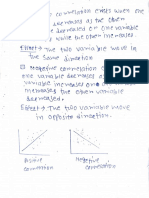 correlation exists when one
decreases as the other
decreases or one variable
while the other increases.
Effect → The two variable move in
the same direction.
Negative correlation
the variable decreases as
variable increases on
increases the other variable
decreased.
Effect → The two variable move
in opposite direction.
Positive Negative
correlation correlation